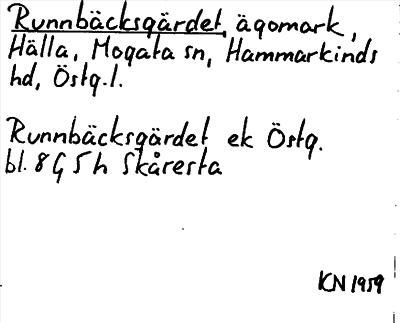 Runnbäcksgärdet, ägomark,
Hälla, Mogata sn, Hammarkinds
hd, Östg.l.
Runnbäcksgärdet ek Östg.
bl. 8 G 5 h Skåresta
KN 1959